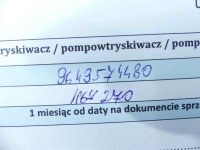 tryskiwacz / pompowtryskiwacz / pomp
9643574480
270
1 miesiąc od daty na dokumencie sprz